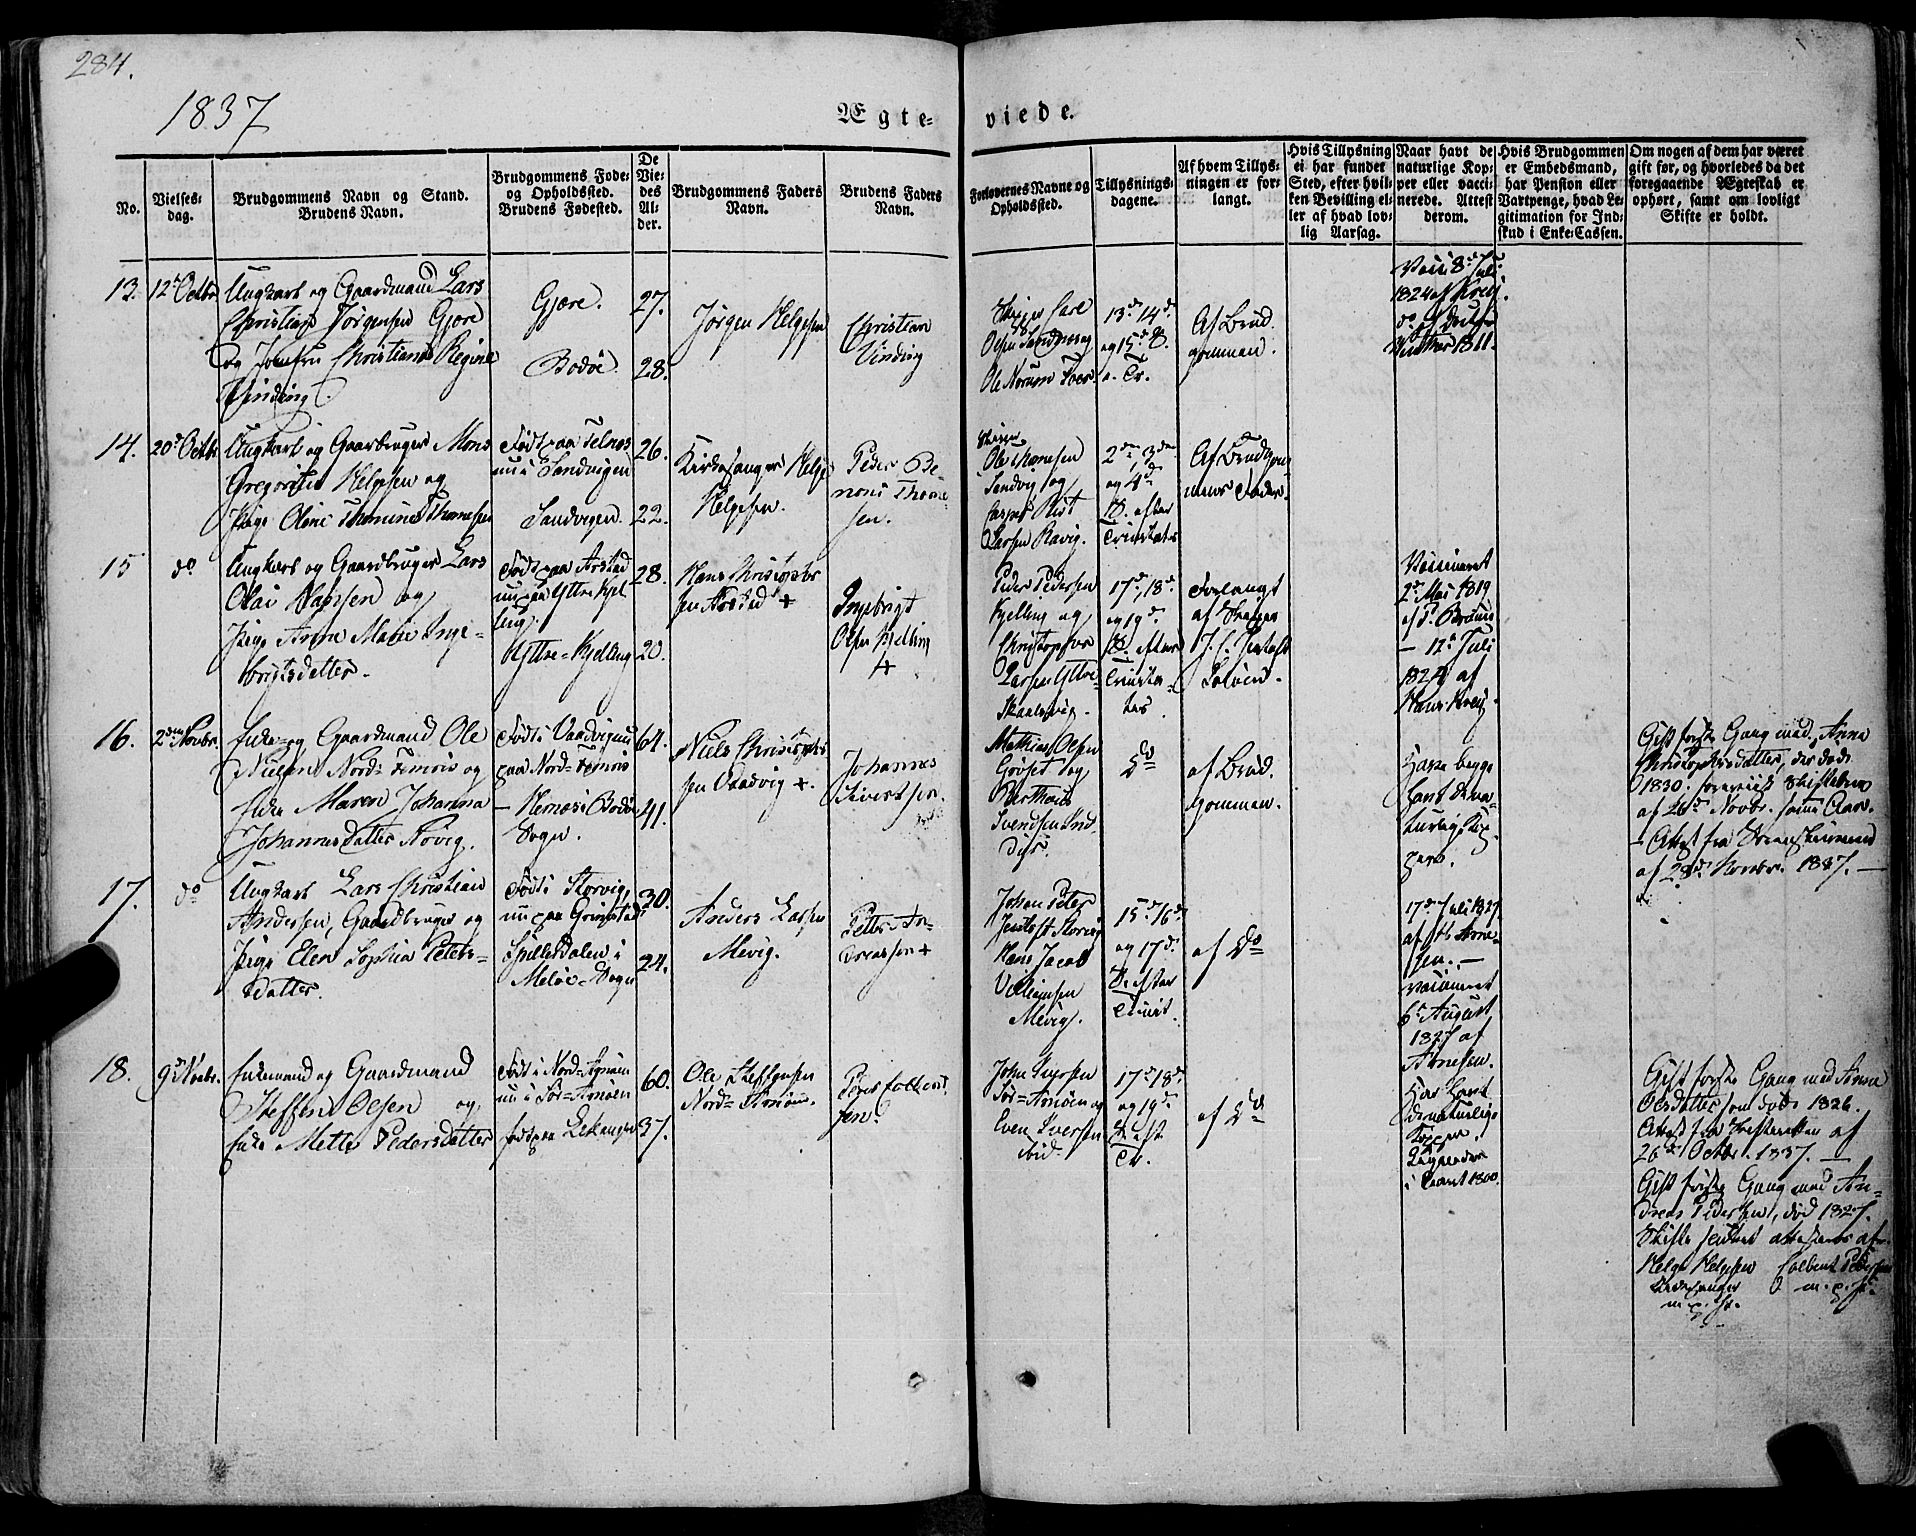 284.
1837
Ægte- viede.
No.
Vielses-
dag.
Brudgommens Navn og Stand.
Brudens Navn.
Brudgommens Føde-
og Opholdssted.
Brudens Fødested.
De
Vie-
des
Al-
der.
Brudgommens Faders
Navn.
Brudens Faders
Navn.
Forlovernes Navne og
Opholdssted.
Tillysnings-
dagene.
Af hvem Tillys-
ningen er for-
langt.
Hvis Tillysning
ei har fundet
Sted, efter hvil-
ken Bevilling el-
ler af hvad lov-
lig Aarsag.
Naar havt de
naturlige Kop-
per eller vacci-
nerede. Attest
derom.
Hvis Brudgommen
er Embedsmand,
har Pension eller
Vartpenge, hvad Le-
gitimation for Ind-
skud i Enke-Cassen.
Om nogen af dem har været
gift før, og hvorledes da det
foregaaende Ægteskab er
ophørt, samt om lovligt
Skifte er holdt.
13. 12 Octbr
Ungkarl og Gaardmand Lars
Christian Jørgensen Gjøre
og Jomfru Christiane Regine
Vinding.
Gjøre.
Bodøe.
27.
28.
Jørgen Helgesen
Christian
Vinding
Skipper Carl
Olsen
Ole Norum
13de 14de
og 15de S.
e. Tr.
Af Brud
gommen.
Vacc. 8de Juli
1824 af Kreij.
do af
1811.
14. 20de Octbr
Ungkarl og Gaardbruger Mons
Gregorius Helgesen og
Pige Oleni Thomine Thomesen
Født paa Telnes
nu i Sandvigen
Sandvigen.
26.
22.
Kirkesanger Helge
Helgesen.
Peder Be-
noni Thome
sen.
Skipper
Ole Thomesen
Sandvig og
Larsen Ravig.
2den 3die
og 4de
S. efter
Trinitatis
Af Brudgom
mens Fader.
15 do
Ungkarl og Gaardbruger Lars
Olai Hansen og
Pige Anne Marie Inge-
brigtsdatter.
Født paa Arstad
nu paa Yttre Kjel
ling.
Yttre-Kjelling
28.
20.
Hans Christopher
sen Arstad +
Ingebrigt
Olsen Kjelling
+
Peder Pedersen
Kjelling og
Christopher
Larsen Yttre
17de, 18de
og 19de
S. efter
Trinita-
tis.
Forlangt
af Skipper
J. C. Jentoft
Vaccineret
2de Mai 1819
af P. Bruun
- 12te Juli
1824 af
Hans Kreij.
16. 2den Novbr.
Enke- og Gaardmand Ole
Nielsen Nord-Femris og
Enke Maren Johanna
Johannesdatter Røvig.
Født i Vaadvig nu
paa Nord-Femris
- Hernøs i Bodøe
Sogn.
64.
41.
Niels Christopher
sen Vaadvig +.
Johannes
Sivertsen.
Mathias Olsen
Grøset og
Svendsen Ind
dyr.
do
af Brud
gommen.
Have begge
havt de na-
turlige Kop-
per.
Gift første Gang med Anna
Christophersdatter, der døde
1830. foreviist Skiftebrev
af 26de Novbr. samme Aar.
- Attest fra
af 28de Novbr. 1837. —
17. do
Ungkarl Lars Christian
Andersen, Gaardbruger og
Pige Elen Sophia Peters-
datter.
Født i Storvig,
nu paa Grimstad
Spilderdalen i
Meløe-Sogn
30.
24.
Anders Larsen
Mevig.
Petter An-
dreassen +
Johan Peter
Jentoft Storvig
Hans Jacob
Villumsen
Mevig.
15de 16de
og 17de.
S. efter
Trinit.
af do
17de Juli 1827
af Arne-
sen. —
vaccineret
6te August
1827 af
Arnesen.
18. 9de Novbr.
Enkemand og Gaardmand
Steffen Olsen og
Enke Mette Pedersdatter
Født i Nord-Arnøen
nu i Sør-Arnøen
født paa Lekanger
60.
37.
Ole Steffensen
Nord-Arnøen.
Peder Colbent
sen.
John Iversen
Sør-Arnøen og
Even Iversen
ibid.
17de 18de
og 19de
S. eft
Tr.
af do
Har havt
de naturlige
Kopper.
Ligeledes
i Aaret 1800.
Gift første Gang med Anna
Olesdatter som døde 1826.
Attest fra Skifteretten af
26de Octbr. 1837. —
Gift første Gang med An-
dreas Pedersen, død 1827.
Skifte holdt attesteres af
Helge Helgesen Colbent Pedersen
Kirkesanger m. p. P.
m. p. P.